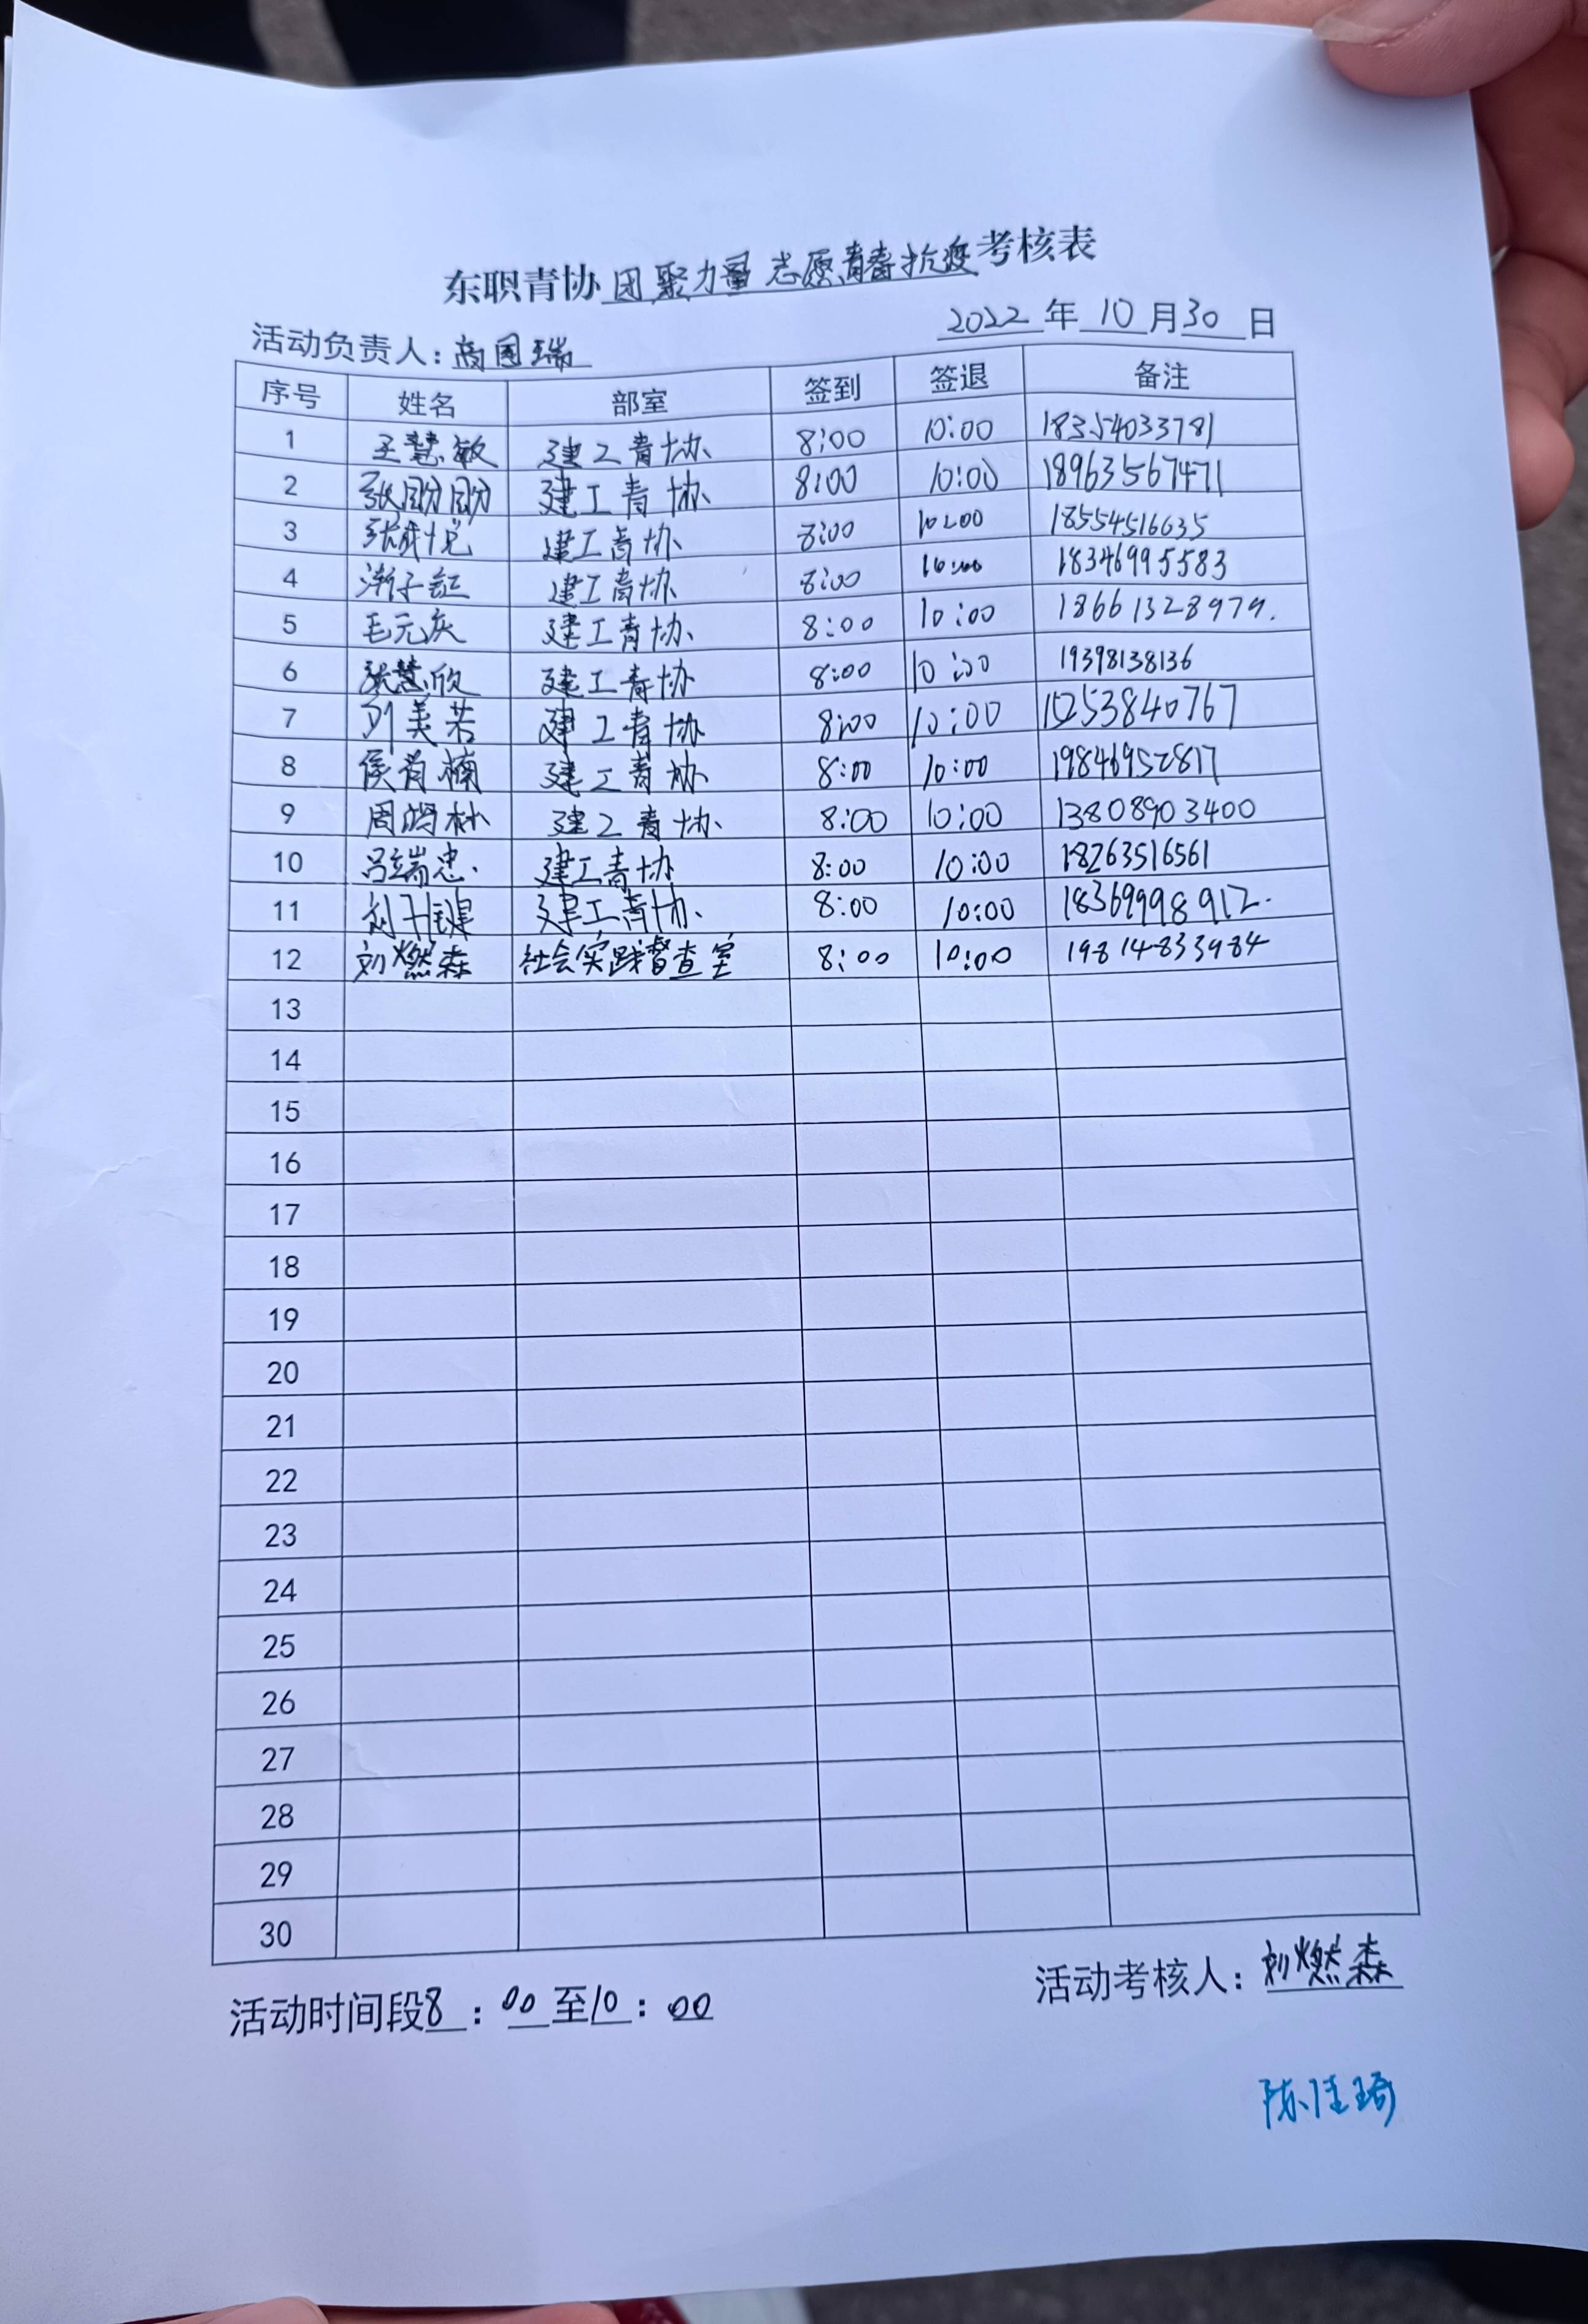 东职青协团聚力量 志愿青春抗疫考核表
活动负责人：商国瑞 2022年10月30日
序号 姓名 部室 签到 签退 备注
1 王慧敏 建工青协 8:00 10:00 18354033781
2 张盼盼 建工青协 8:00 10:00 18963567471
3 张成悦 建工青协 8:00 10:00 18554516635
4 建工青协 8:00 10:00 18346995583
5 毛元庆 建工青协 8:00 10:00 18661328979.
6 张慧欣 建工青协 8:00 10:00 19398138136
7 刘美若 建工青协 8:00 10:00 15253840767
8 侯肖楠 建工青协 8:00 10:00 19846952817
9 周鸿林 建工青协 8:00 10:00 13808903400
10 吕端忠 建工青协 8:00 10:00 18263516561
11 建工青协 8:00 10:00 18369998912.
12 刘燃森 社会实践督查室 8:00 10:00 19814833984
13
14
15
16
17
18
19
20
21
22
23
24
25
26
27
28
29
30
活动时间段8：00至10：00 活动考核人：刘燃森
陈佳琦